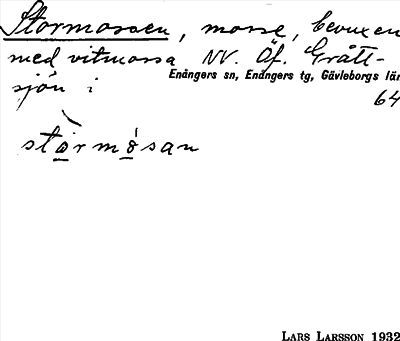 Stormossen, mosse, bevuxen
med vitmossa NV. Öf. Grått-
Enångers sn, Enångers tg, Gävleborgs län
sjön i
64
stormósan
LARS LARSSON 1932